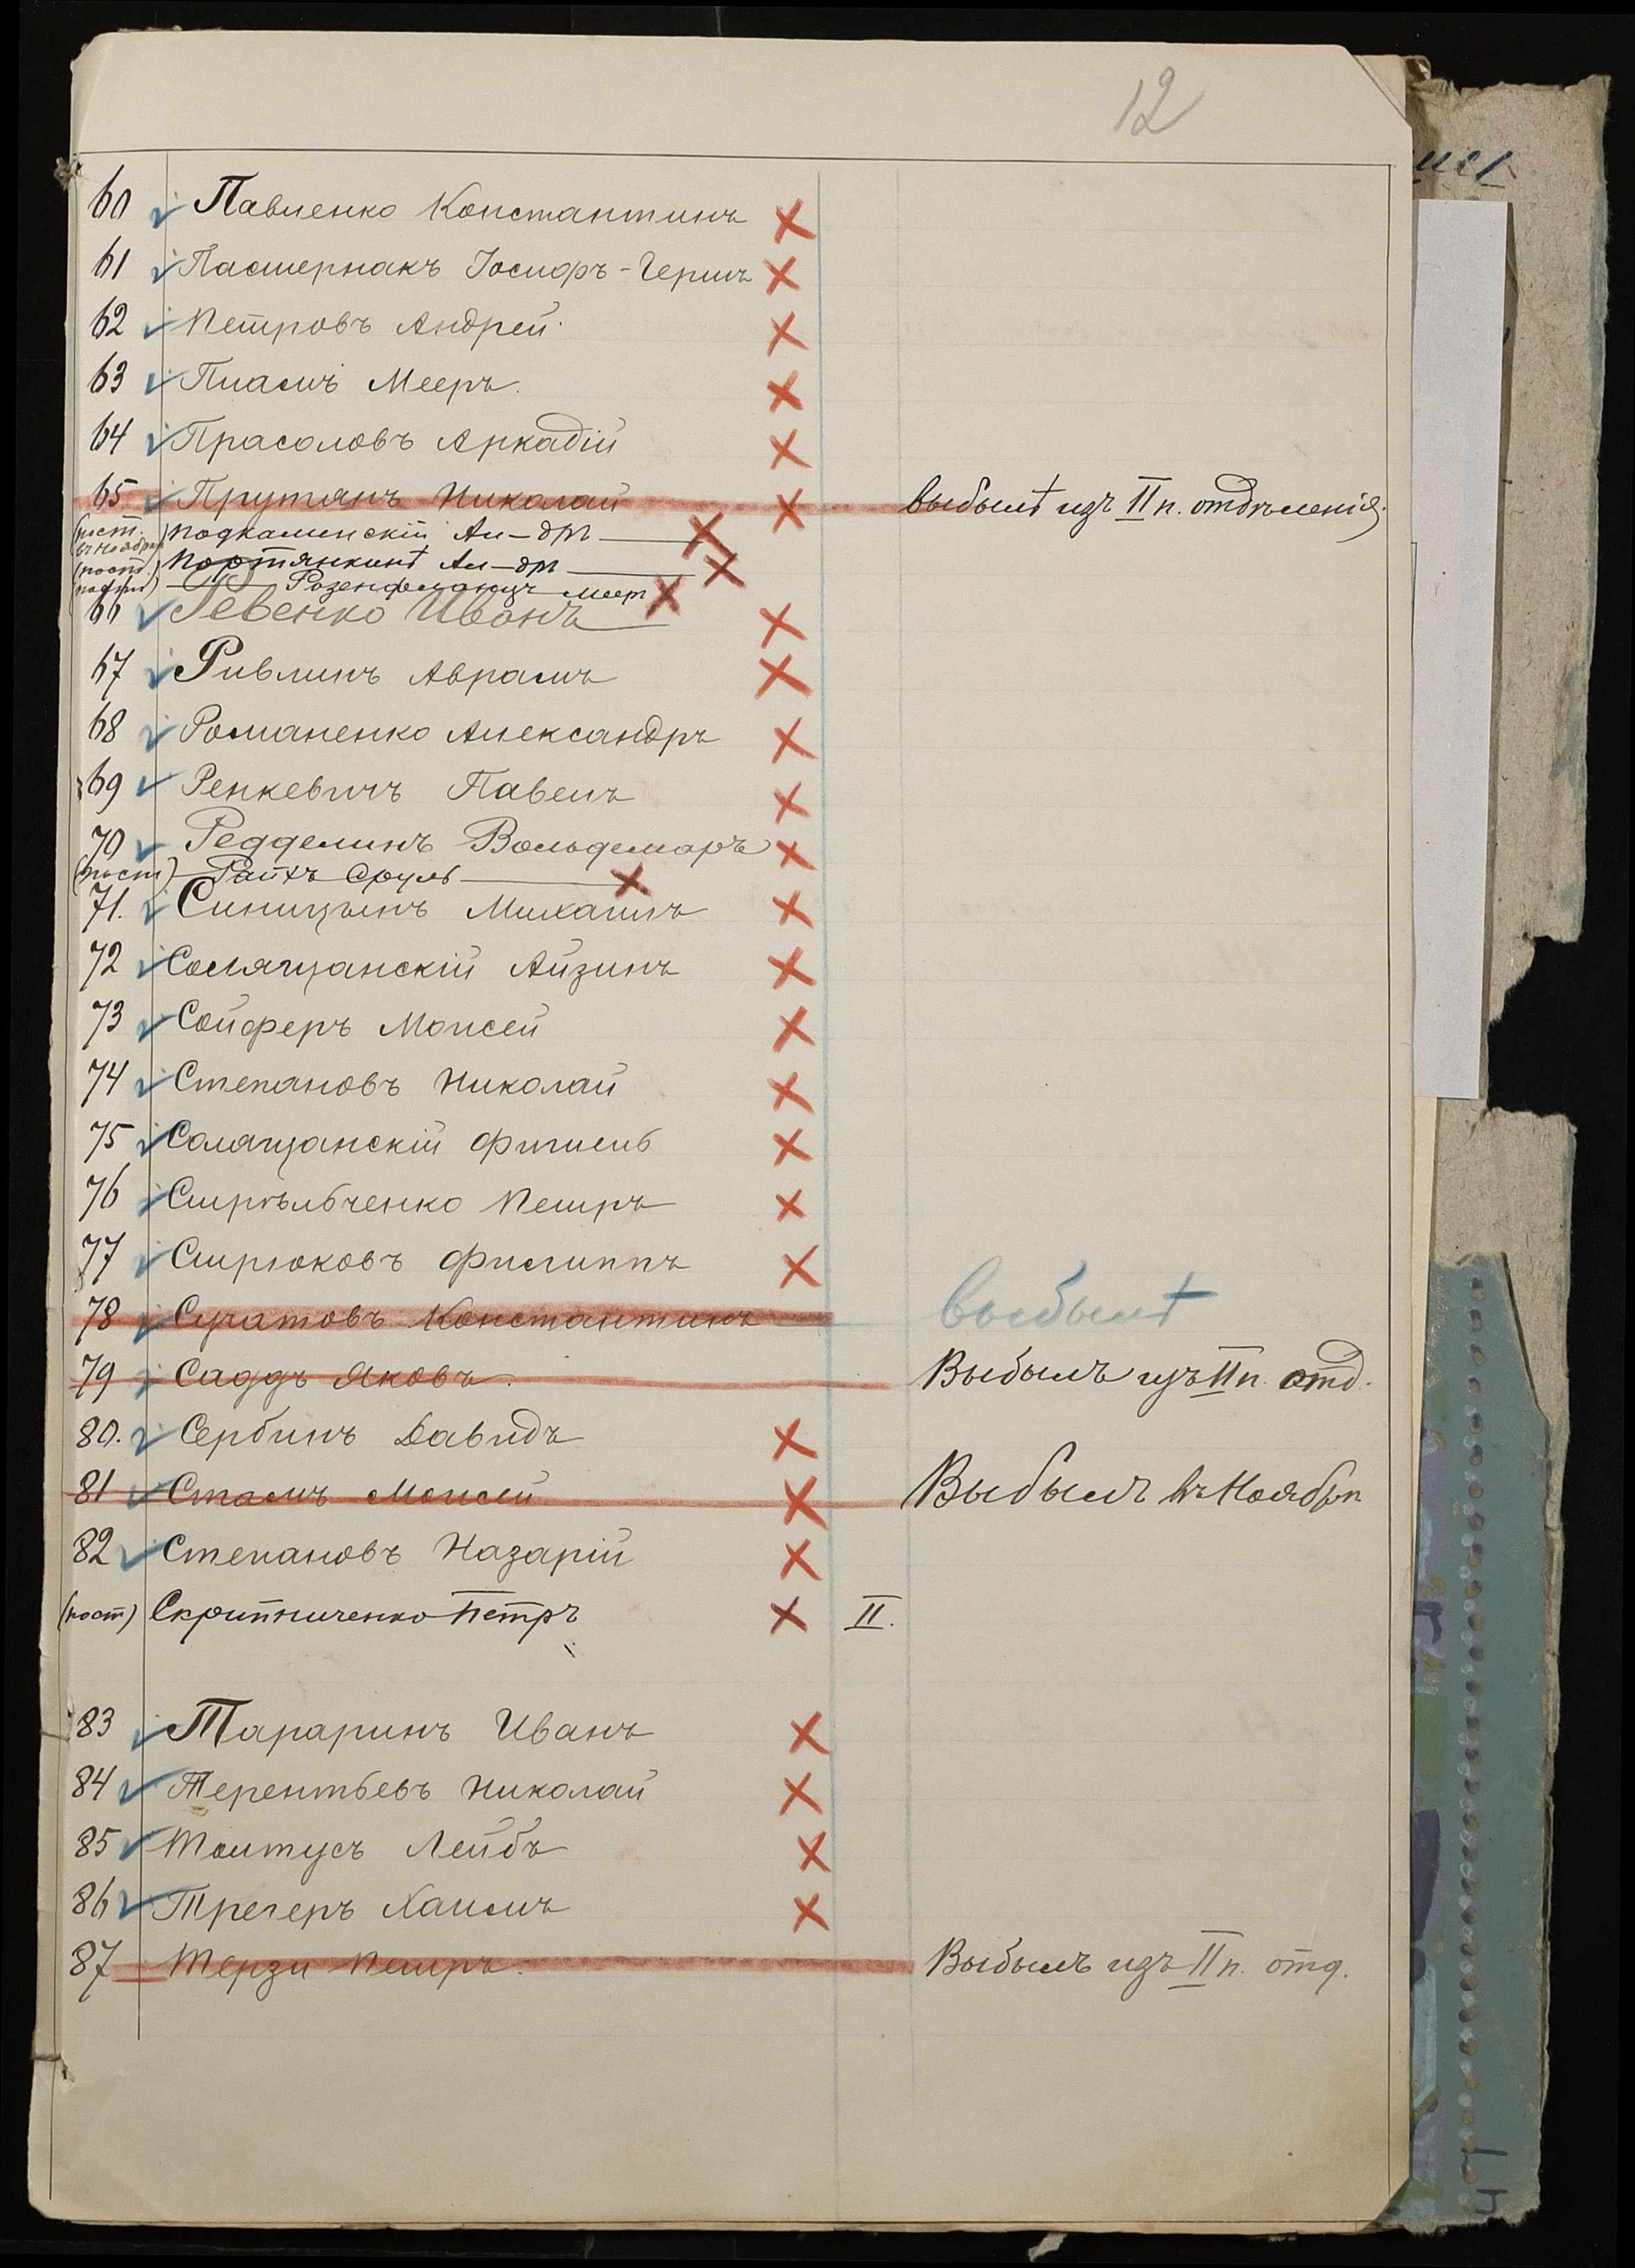 12
60 Павленко Константинъ
61 Пастернакъ Іосифъ-Гершъ
62 Петровъ Андрей
63 Пиамъ Мееръ.
64 Прасоловъ Аркадій
65 Прутянъ Николай выбылъ изъ II п. отдѣленія.
(пост. въ ноябрѣ) Подкаминскій Ал-дръ
(пост.) Портянкинъ Ал-дръ
Розенфельдъ Меер
66 Ревенко Иванъ
67 Ривлинъ Аврамъ
68 Романенко Александръ
69 Ренкевичъ Павелъ
70 Редделинъ Вольдемаръ
(пост) Райхъ Сруль
71. Синицынъ Михаилъ
72 Солящанскій Айзикъ
73 Сойферъ Моисей
74 Степановъ Николай
75 Солящанскій Фишель
76 Стрѣльченко Петръ
77 Стрюковъ Филиппъ
78 Суратовъ Константинъ выбылъ
79 Саддъ Яковъ. Выбылъ изъ II п. отд.
80. Сербинъ Давидъ
81 Стамъ Моисей Выбылъ въ Ноябрѣ
82 Степановъ Назарій
(пост) Скрипниченко Петръ II.
83 Тараринъ Иванъ
84 Терентьевъ Николай
85 Толтусъ Лейбъ
86 Трегеръ Хаимъ
87 Терзи Петръ. Выбылъ изъ II п. отд.